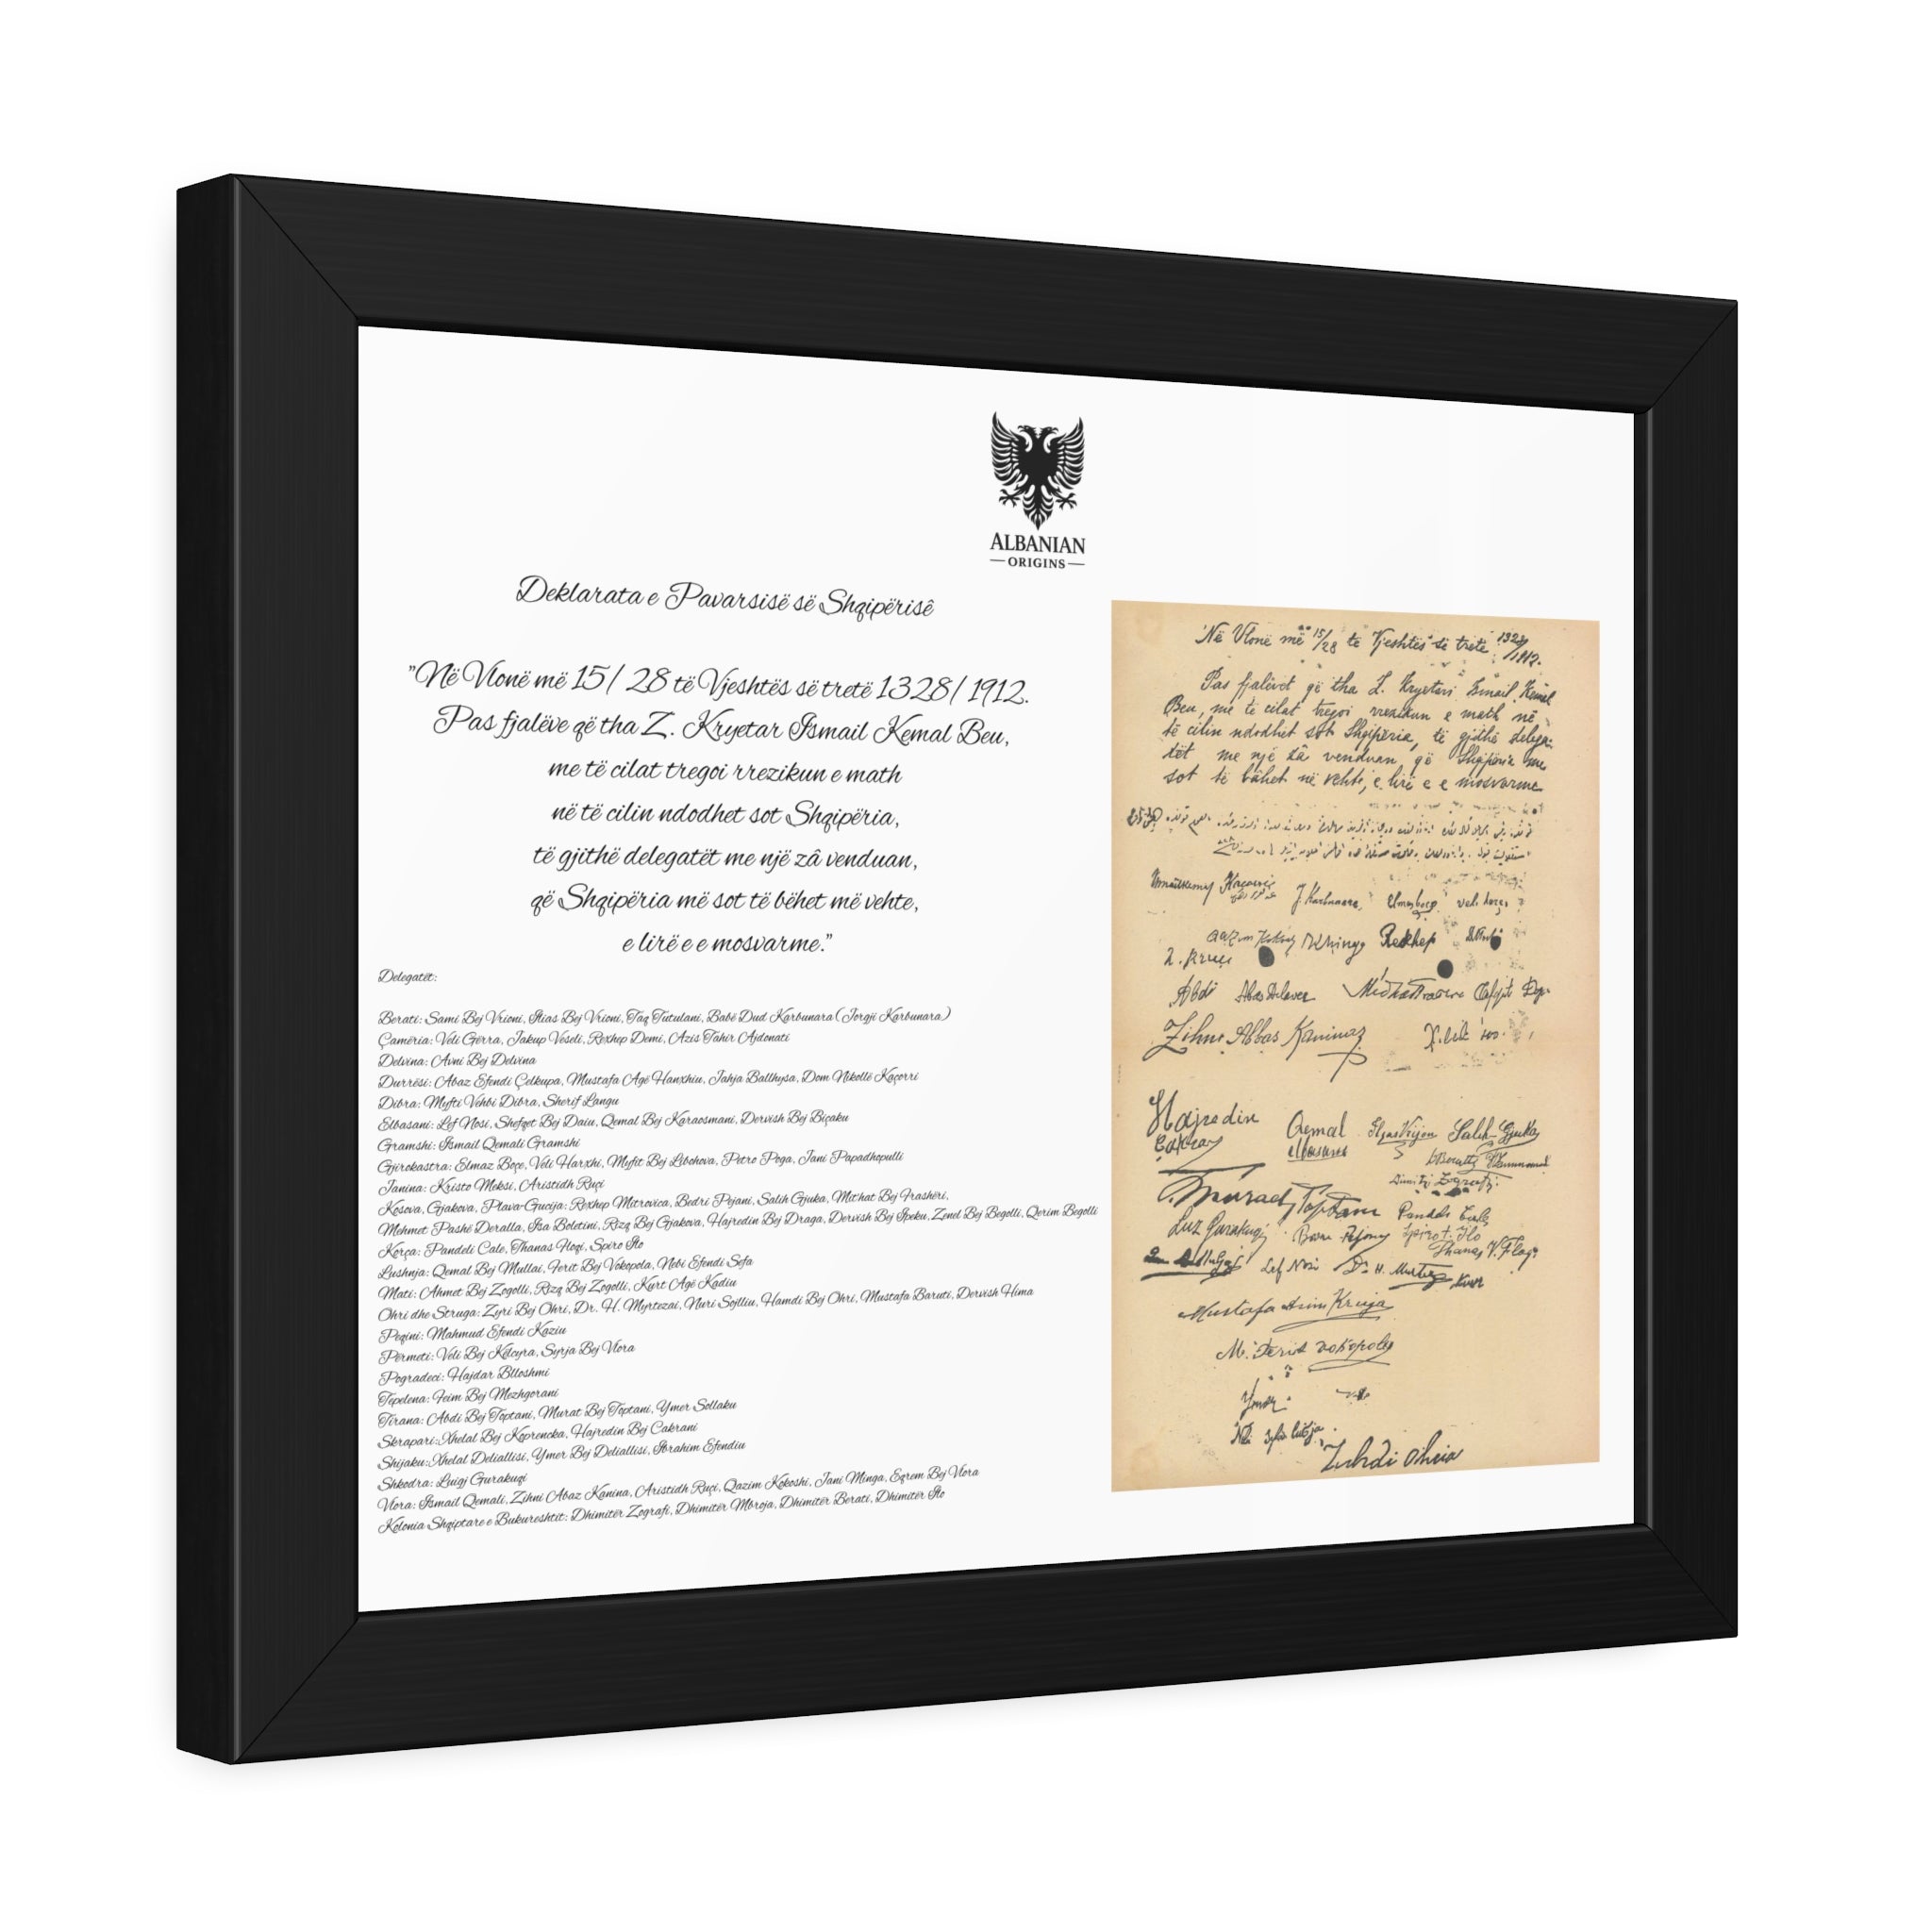 ALBANIAN
ORIGINS
Deklarata e Pavarsisë së Shqipërisê
"Në Vlonë më 15/ 28 të Vjeshtës së tretë 1328/ 1912.
Pas fjalëve që tha Z. Kryetar Ismail Kemal Beu,
me të cilat tregoi rrezikun e math
në të cilin ndodhet sot Shqipëria,
të gjithë delegatët me një zâ venduan,
që Shqipëria më sot të bëhet më vehte,
e lirë e e mosvarme."
Delegatët:
Berati: Sami Bej Vrioni, Ilias Bej Vrioni, Taq Tutulani, Babë Dud Karbunara (Jorgji Karbunara)
Çamëria: Veli Gërra, Jakup Veseli, Rexhep Demi, Azis Tahir Ajdonati
Delvina: Avni Bej Delvina
Durrësi: Abaz Efendi Çelkupa, Mustafa Agë Hanxhiu, Jahja Ballhysa, Dom Nikollë Kaçorri
Dibra: Myfti Vehbi Dibra, Sherif Langu
Elbasani: Lef Nosi, Shefqet Bej Daiu, Qemal Bej Karaosmani, Dervish Bej Biçaku
Gramshi: Ismail Qemali Gramshi
Gjirokastra: Elmaz Boçe, Veli Harxhi, Myfit Bej Libohova, Petro Poga, Jani Papadhopulli
Janina: Kristo Meksi, Aristidh Ruçi
Kosova, Gjakova, Plava-Gucija: Rexhep Mitrovica, Bedri Pejani, Salih Gjuka, Mit'hat Bej Frashëri,
Mehmet Pashë Deralla, Isa Boletini, Rizq Bej Gjakova, Hajredin Bej Draga, Dervish Bej Ipeku, Zenel Bej Begolli, Qerim Begolli
Korça: Pandeli Cale, Thanas Floqi, Spiro Ilo
Lushnja: Qemal Bej Mullai, Ferit Bej Vokopola, Nebi Efendi Sefa
Mati: Ahmet Bej Zogolli, Rizq Bej Zogolli, Kurt Agë Kadiu
Ohri dhe Struga: Zyri Bej Ohri, Dr. H. Myrtezai, Nuri Sojlliu, Hamdi Bej Ohri, Mustafa Baruti, Dervish Hima
Peqini: Mahmud Efendi Kaziu
Përmeti: Veli Bej Këlcyra, Syrja Bej Vlora
Pogradeci: Hajdar Blloshmi
Tepelena: Feim Bej Mezhgorani
Tirana: Abdi Bej Toptani, Murat Bej Toptani, Ymer Sollaku
Skrapari: Xhelal Bej Koprencka, Hajredin Bej Cakrani
Shijaku: Xhelal Deliallisi, Ymer Bej Deliallisi, Ibrahim Efendiu
Shkodra: Luigj Gurakuqi
Vlora: Ismail Qemali, Zihni Abaz Kanina, Aristidh Ruçi, Qazim Kokoshi, Jani Minga, Eqrem Bej Vlora
Kolonia Shqiptare e Bukureshtit: Dhimitër Zografi, Dhimitër Mbroja, Dhimitër Berati, Dhimitër Ilo
Në Vlonë më 15/28 të Vjeshtës së tretë 1328/1912.
Pas fjalëvet që tha Z. Kryetari Ismail Kemal
Beu, me të cilat tregoi rrezikun e math në
të cilin ndodhet sot Shqipëria, të gjithë delega-
tët me një zâ venduan që Shqipëria me
sot të bâhet në vehte, e lirë e e mosvarme
J. Karbunara
Rexhep
Abdi
Zihni Abbas Kanina
Hajredin
Qemal
Salih Gjuka
Murad Toptani
Pandeli Cale
Lef Nosi
Dr. H. Murtez
Mustafa Asim Kruja
M. Ferid Vokopola
Zuhdi Ohria